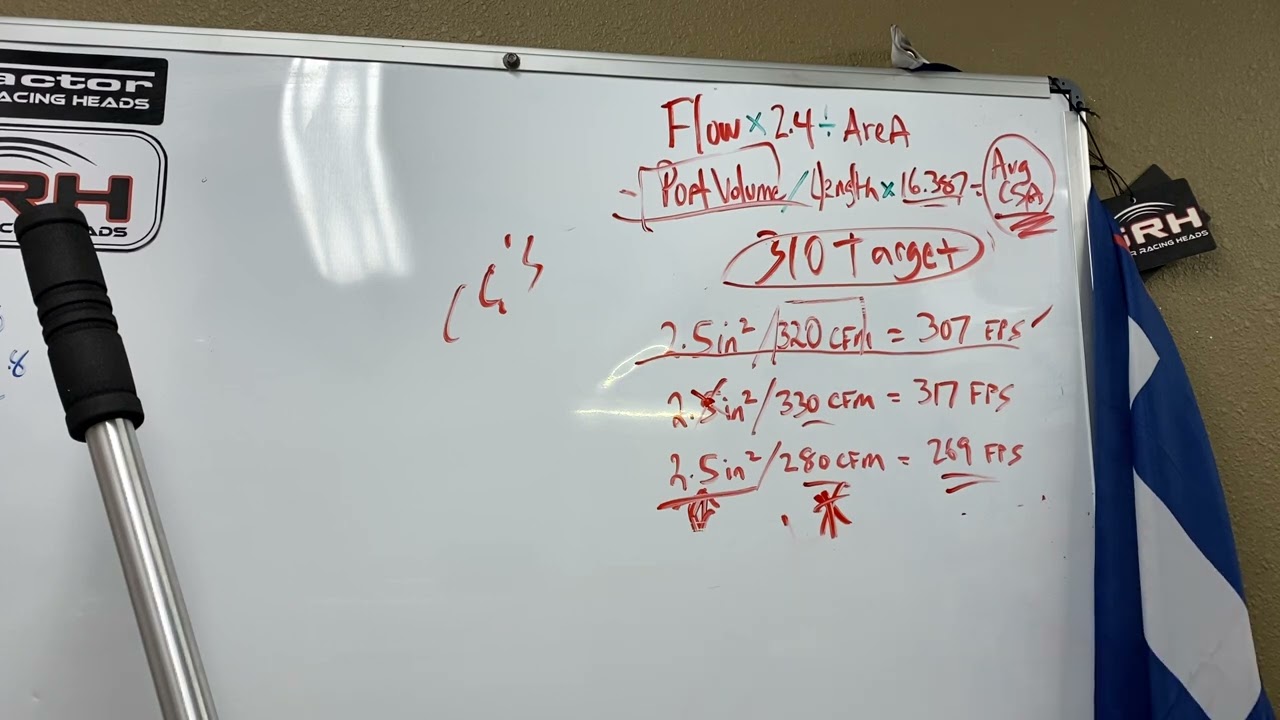 actor
ACING HEADS
RH
HEADS
.8
Flow × 2.4 ÷ AreA
- Port Volume / Length × 16.387 = Avg CSA
310 Target
2.5in² / 320 CFM = 307 FPS
2.5in² / 330 CFM = 317 FPS
2.5in² / 280 CFM = 269 FPS
RH
R RACING HEADS